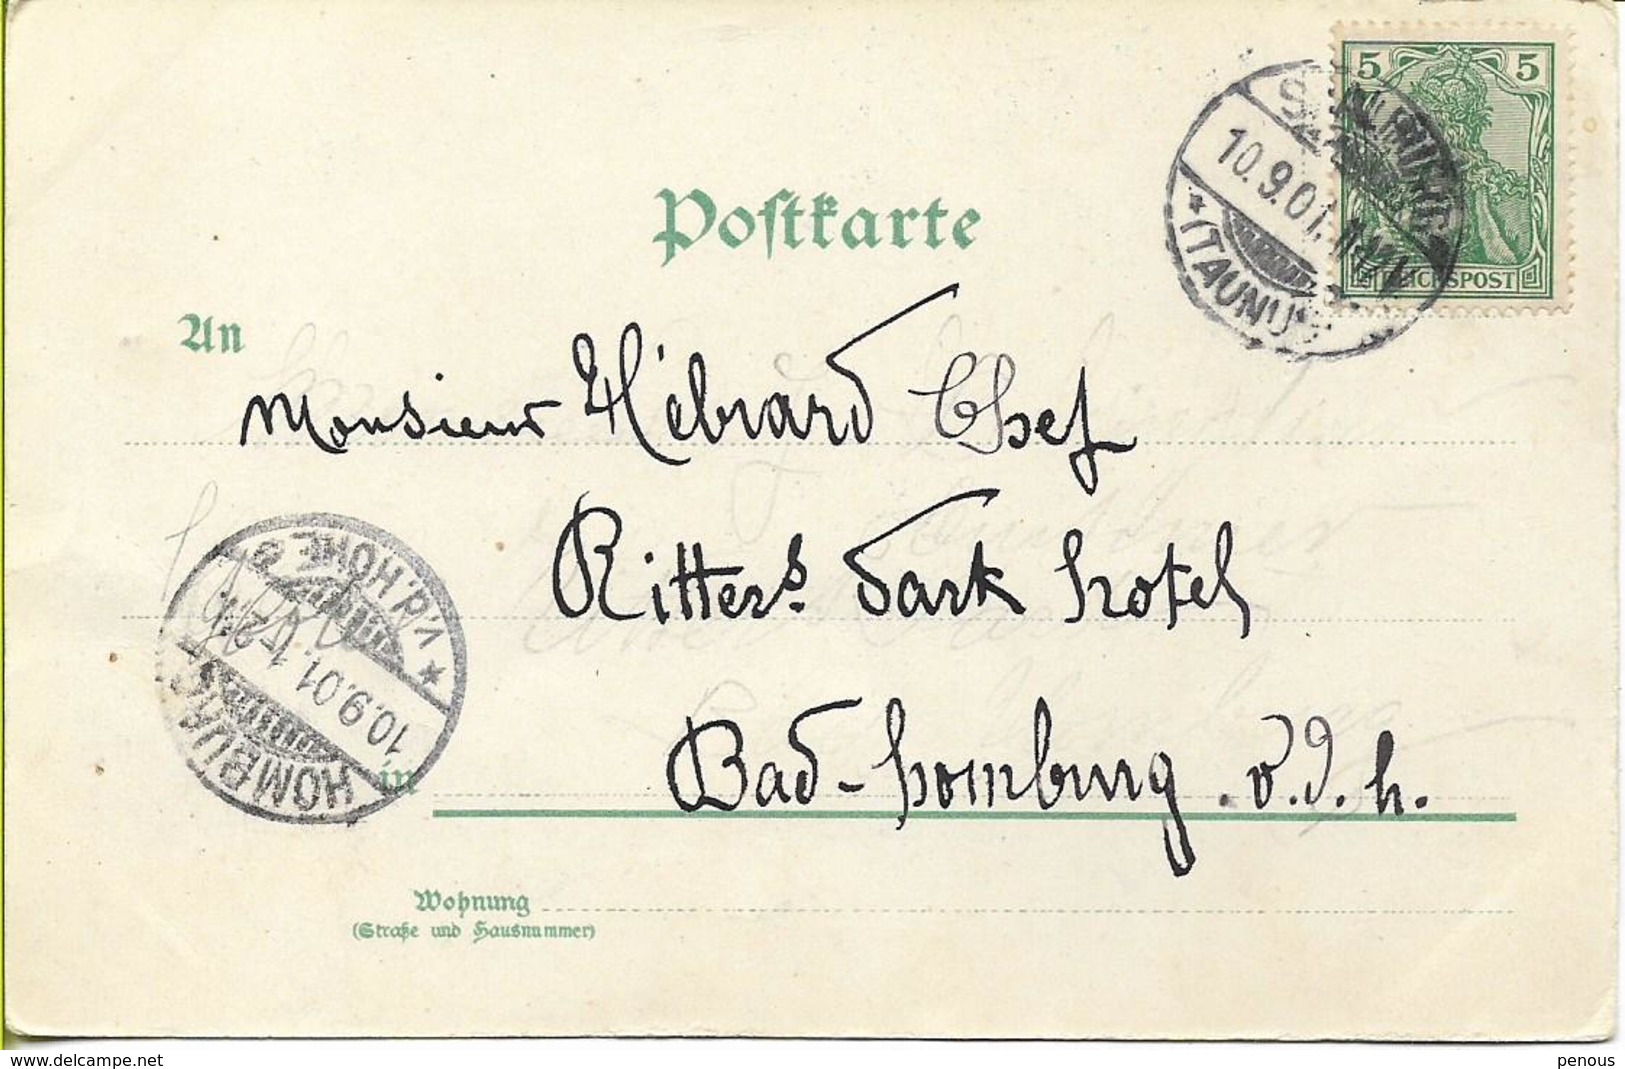 Postkarte
5 5
REICHSPOST
10.9.01.
(TAUNUS)
An
Monsieur Hébrard Chef
Ritters. Park hotel
Bad-homburg . v. d. h.
in
HOMBURG
v.d.HÖHE
10.9.01.
Wohnung
(Straße und Hausnummer)
www.delcampe.net
penous